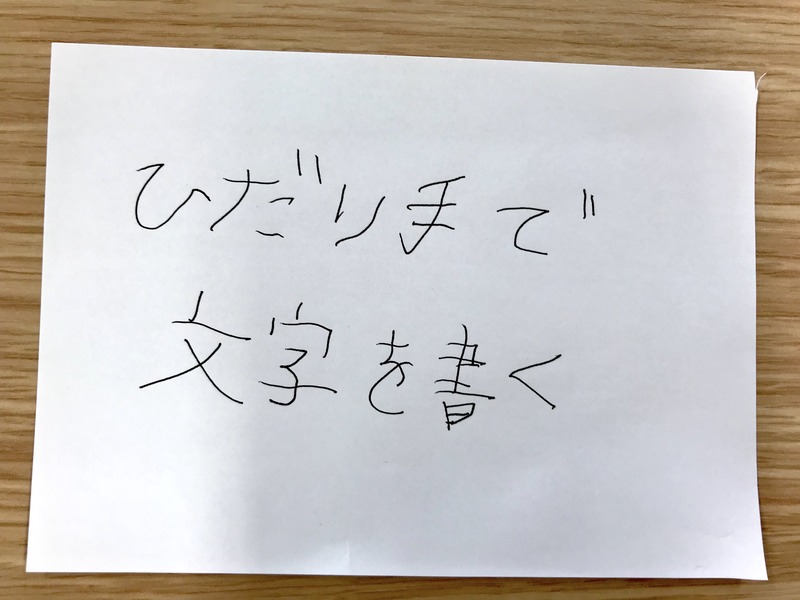 ひだり手で
文字を書く